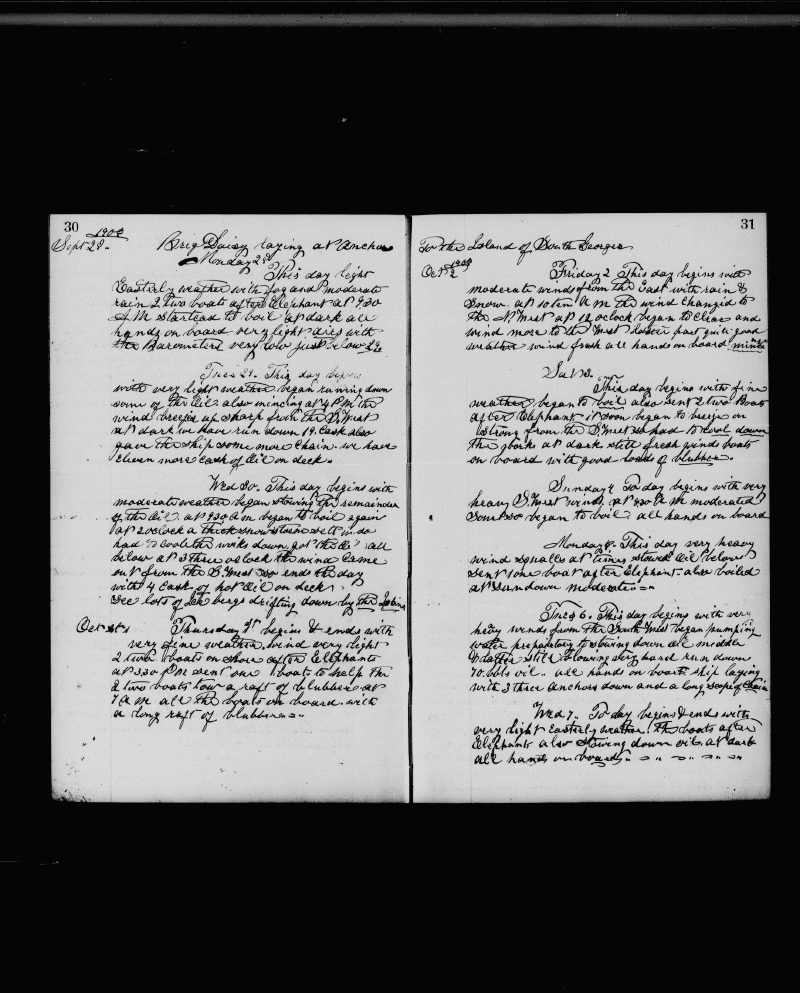 30
1908
Sept 28.
Brig Daisy laying at Anchor
Monday 28
This day light
Easterly weather with fog and moderate
rain 2 two boats after Elephant at 9.30
A.M. started to boil at dark all
hands on board very light airs with
the Barometers very low just below 29
Tues 29. This day begins
with very light weather began runing down
some of the Oil also mincing at 4 P.M. the
wind breezes up sharp from the S. West
at dark we have run down 19. Cask also
gave the ship some more Chain. we have
Eleven more Cask of Oil on deck.
Wed 30. This day begins with
moderate weather began stowing the remainder
of the Oil. at 9.30 A m began to boil again
at 2 oclock a thick snow storm sett in. so
had to cool the works down, got the Oil all
below at 3 three oclock the wind came
out from the S. West so ends the day
with 4 Cask of hot Oil on deck.
See lots of Ice bergs drifting down by the
Oct 1st
Thursday 1st begins & ends with
very fine weather, wind very light
2 two boats on shore after Elephants
at 3.30 P M sent our boats to help the
2 two boats tow a raft of blubber at
7 P M all the boats on board with
a long raft of blubber
31
To the Island of South Georgia
1908
Oct 2
Friday 2 This day begins with
moderate winds from the East with rain &
snow. at 10 ten A M the wind changed to
the N. West at 12 oclock began to Clear and
wind more to the West later part quite good
weather wind fresh all hands on board mincing
Sat 3.
This day begins with fine
weather began to boil also sent 2 two Boats
after Elephant it soon began to breeze on
strong from the S. West so had to cool down
the works at dark still fresh winds boats
on board with good loads of blubber.
Sunday 4 To day begins with very
heavy S. West winds, at 8.30 A M moderated
some so began to boil all hands on board
Monday 5. This day very heavy
wind squalls at times stowed Oil below
sent 1 one boat after Elephant also boiled
at Sundown moderating
Tues 6. This day begins with very
heavy winds from the South West began pumping
water preparatory to stowing down all
& latter still blowing very hard run down
70. bbls oil. all hands on board ship laying
with 3 three Anchors down and a long scope of Chain
Wed 7. To day begins & ends with
very light Easterly weather. the boats after
Elephants also stowing down oil. at dark
all hands on board.